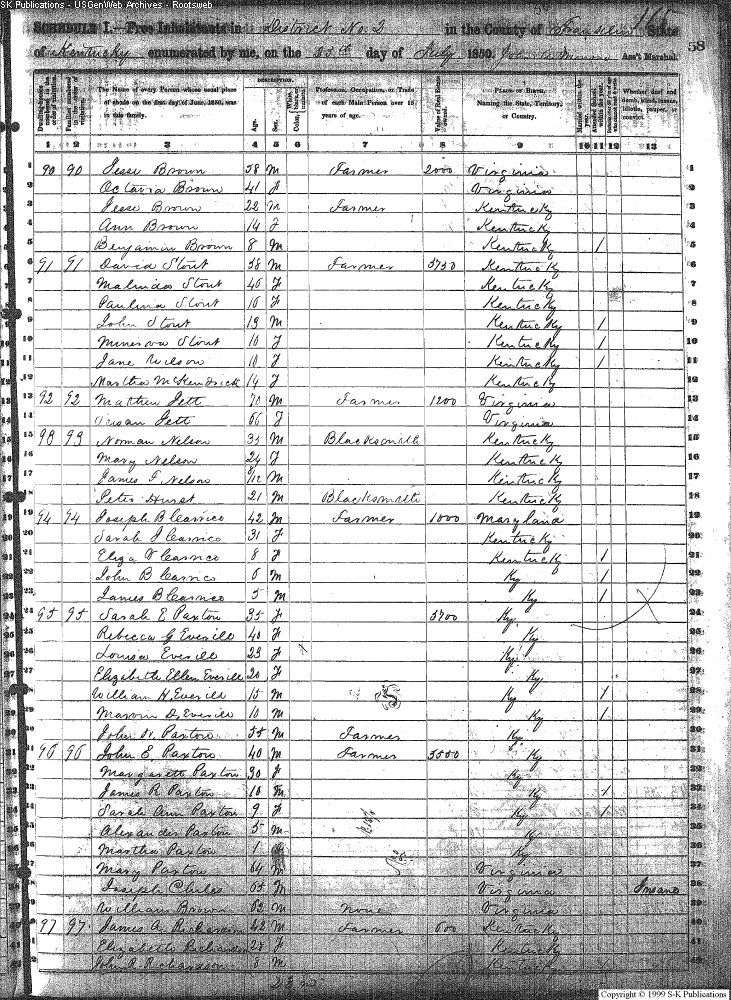 SK Publications - USGenWeb Archives - Rootsweb
165
SCHEDULE I.—Free Inhabitants in District No. 2 in the County of Franklin State
of Kentucky enumerated by me, on the day of July 1850. Ass't Marshal. 58
DESCRIPTION.
Dwelling-houses numbered in the order of visitation. Families numbered in the order of visitation. The Name of every Person whose usual place of abode on the first day of June, 1850, was in this family. Age. Sex. Profession, Occupation, or Trade of each Male Person over 15 years of age. Value of Real Estate owned. Place of Birth, Naming the State, Territory, or Country. Married within the year. Whether deaf and dumb, blind, insane, idiotic, pauper, or convict.
1 2 3 4 5 6 7 8 9 10 11 12 13
1 90 90 Jesse Brown 58 M Farmer 2000 Virginia 1
2 Octavia Brown 41 F Virginia 2
3 Jesse Brown 22 M Farmer Kentucky 3
4 Ann Brown 14 F Kentucky 4
5 Benjamin Brown 8 M Kentucky / 5
6 91 91 David Stout 58 M Farmer 3750 Kentucky 6
7 Malinda Stout 40 F Kentucky 7
8 Paulina Stout 16 F Kentucky 8
9 John Stout 13 M Kentucky / 9
10 Minerva Stout 10 F Kentucky / 10
11 Jane Wilson 10 F Kentucky / 11
12 Martha McKendrick 14 F Kentucky 12
13 92 92 Mathew Jett 70 M Farmer 1200 Virginia 13
14 Susan Jett 66 F Virginia 14
15 93 93 Norman Nelson 35 M Blacksmith Kentucky 15
16 Mary Nelson 24 F Kentucky 16
17 James F Nelson 8/12 M Kentucky 17
18 Peter Hurst 21 M Blacksmith Kentucky 18
19 94 94 Joseph B Carrico 42 M Farmer 1000 Maryland 19
20 Sarah J Carrico 31 F Kentucky 20
21 Eliza V Carrico 8 F Kentucky / 21
22 John B Carrico 6 M Ky / 22
23 James B Carrico 5 M Ky / 23
24 95 95 Sarah E Paxton 35 F 3700 Ky 24
25 Rebecca G Everill 40 F Ky 25
26 Louisa Everill 23 F Ky 26
27 Elizabeth Ellen Everill 20 F Ky 27
28 William H Everill 15 M Ky / 28
29 Marvin D Everill 10 M Ky / 29
30 John W. Paxton 55 M Farmer Ky 30
31 96 96 John E. Paxton 40 M Farmer 3550 Ky 31
32 Margarett Paxton 30 F Ky 32
33 James R Paxton 10 M Ky / 33
34 Sarah Ann Paxton 9 F Ky / 34
35 Alexander Paxton 5 M Ky 35
36 Martha Paxton 1 Ky 36
37 Mary Paxton 64 Virginia 37
38 Joseph Chiles 65 M Virginia Insane 38
39 William Brown 62 M None Virginia 39
40 97 97 James A. Richardson 42 M Farmer 600 Kentucky 40
41 Elizabeth Richardson 28 F Kentucky 41
42 John R. Richardson 8 M Kentucky 42
Copyright © 1999 S-K Publications